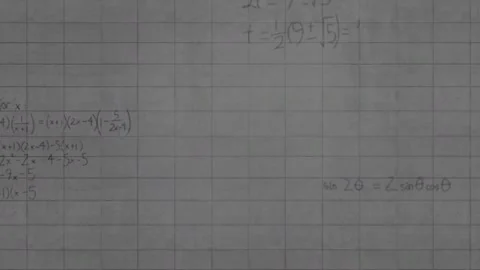 t = 1/2 (9 ± √5) =
for x
4)(1/(x+1)) = (x+1)(2x-4)(1 - 5/(2x-4))
(x+1)(2x-4) - 5(x+1)
2x² - 2x - 4 - 5x - 5
- 7x - 5
sin 2θ = 2 sinθ cosθ